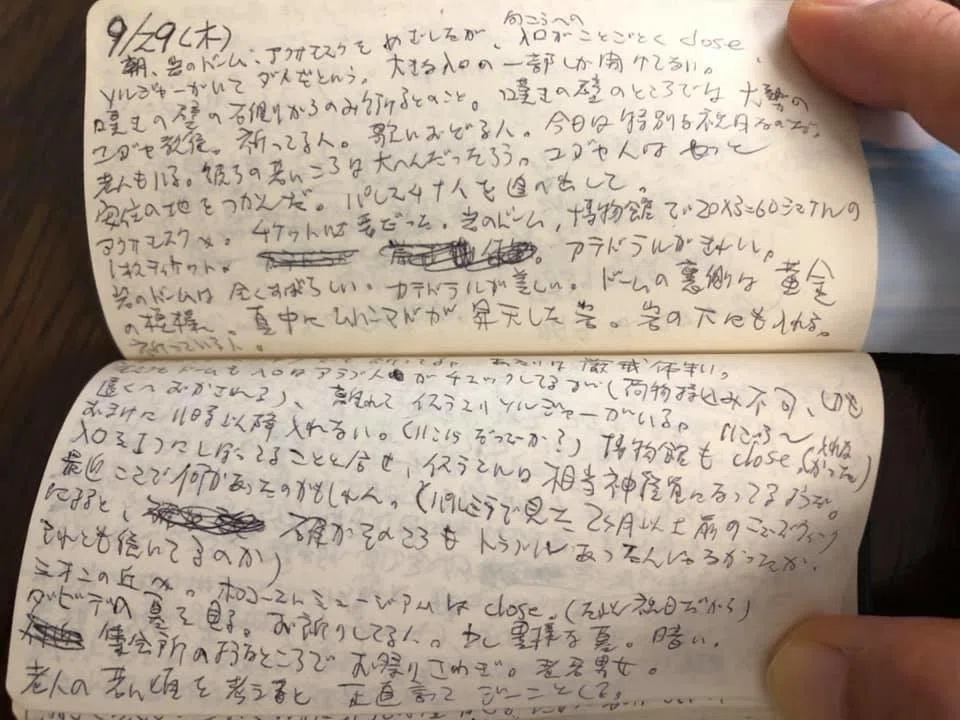 9/29(木)
向こうへの
朝、岩のドーム、アクサモスクをめざしたが、入口がことごとく close
ソルジャーがいてダメだという。大きな入口の一部しか開けてない。
嘆きの壁の右側からのみ行けるとのこと。嘆きの壁のところでは大勢の
ユダヤ教徒。祈ってる人。歌いおどる人。今日は特別な祝日なのだ。
老人もいる。彼らの若いころは大へんだったろう。ユダヤ人はやっと
安住の地をつかんだ。パレスチナ人を追い出して。
アクサモスクへ。チケットは要だった。岩のドーム、博物館で 20×3=60シェケルの
1枚チケット。カテドラルがきれい。
岩のドームは全くすばらしい。カテドラルが美しい。ドームの裏側は黄金
の模様。真中にムハンマドが昇天した岩。岩の下にも入れる。
祈っている人。
入口はアラブ人がチェックしてるが(荷物持込み不可、
遠くへおかされる)、離れてイスラエルソルジャーがいる。
おまけに11時以降入れない。博物館も close。
入口を1つにしぼってることと合せ、イスラエルは相当神経質になってるようだ。
最近ここで何かあったのかもしれん。(パルミラで見た2ヶ月以上前のニューズウィーク
になると、確かそのころもトラブルあったんじゃなかったか、
それとも続いてるのか)
シオンの丘へ。ホロコーストミュージアムは close。(たぶん祝日だから)
ダビデの墓を見る。お祈りしてる人。少し異様な墓。暗い。
集会所のようなところでお祭りさわぎ。老若男女。
老人の苦んだ を考えると正直言ってジーンとくる。